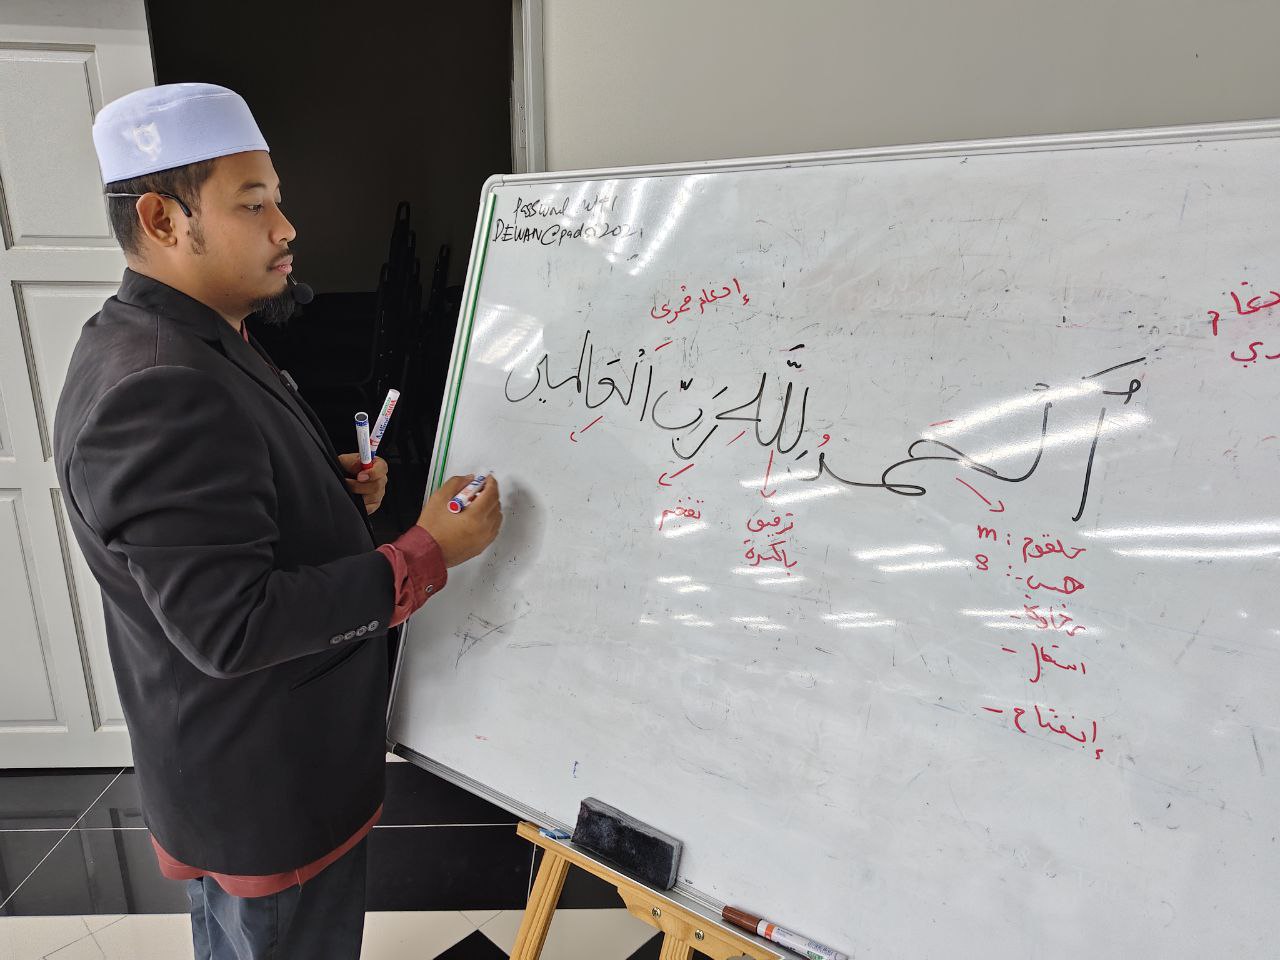 Password wifi
DEWAN@padu2021
إدغام قمري
ٱلْحَمدُ لِلَّهِ رَبِّ الْعَالَمِين
تفخيم
ترقيق
بالكسرة
حلقوم : m
همس : 8
رخاوة -
استفال -
إنفتاح -